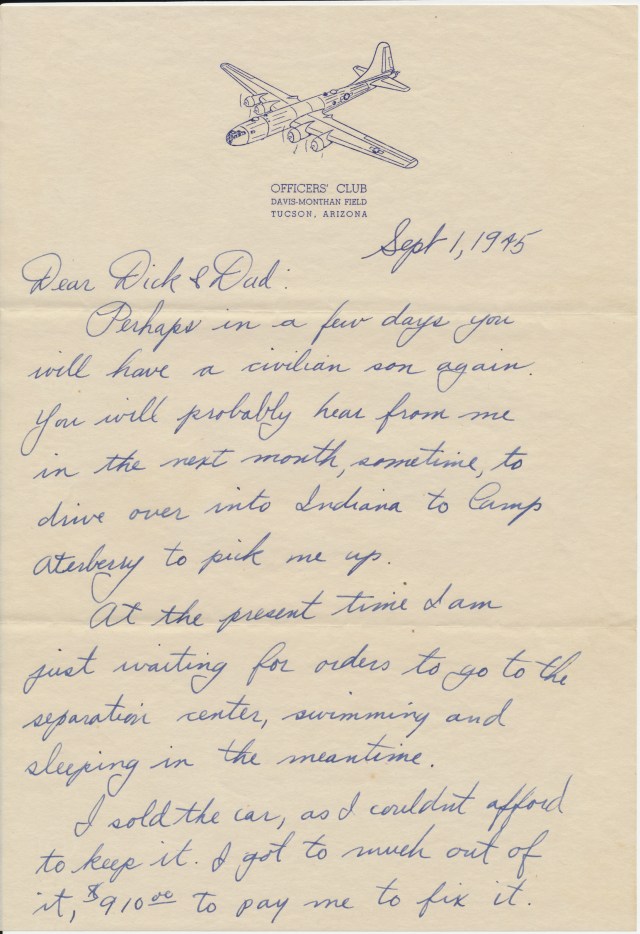 OFFICERS' CLUB
DAVIS-MONTHAN FIELD
TUCSON, ARIZONA
Sept 1, 1945
Dear Dick & Dad:
Perhaps in a few days you
will have a civilian son again.
You will probably hear from me
in the next month, sometime, to
drive over into Indiana to Camp
Aterberry to pick me up.
At the present time I am
just waiting for orders to go to the
separation center, swimming and
sleeping in the meantime.
I sold the car, as I couldnt afford
to keep it. I got to much out of
it, $910.00 to pay me to fix it.